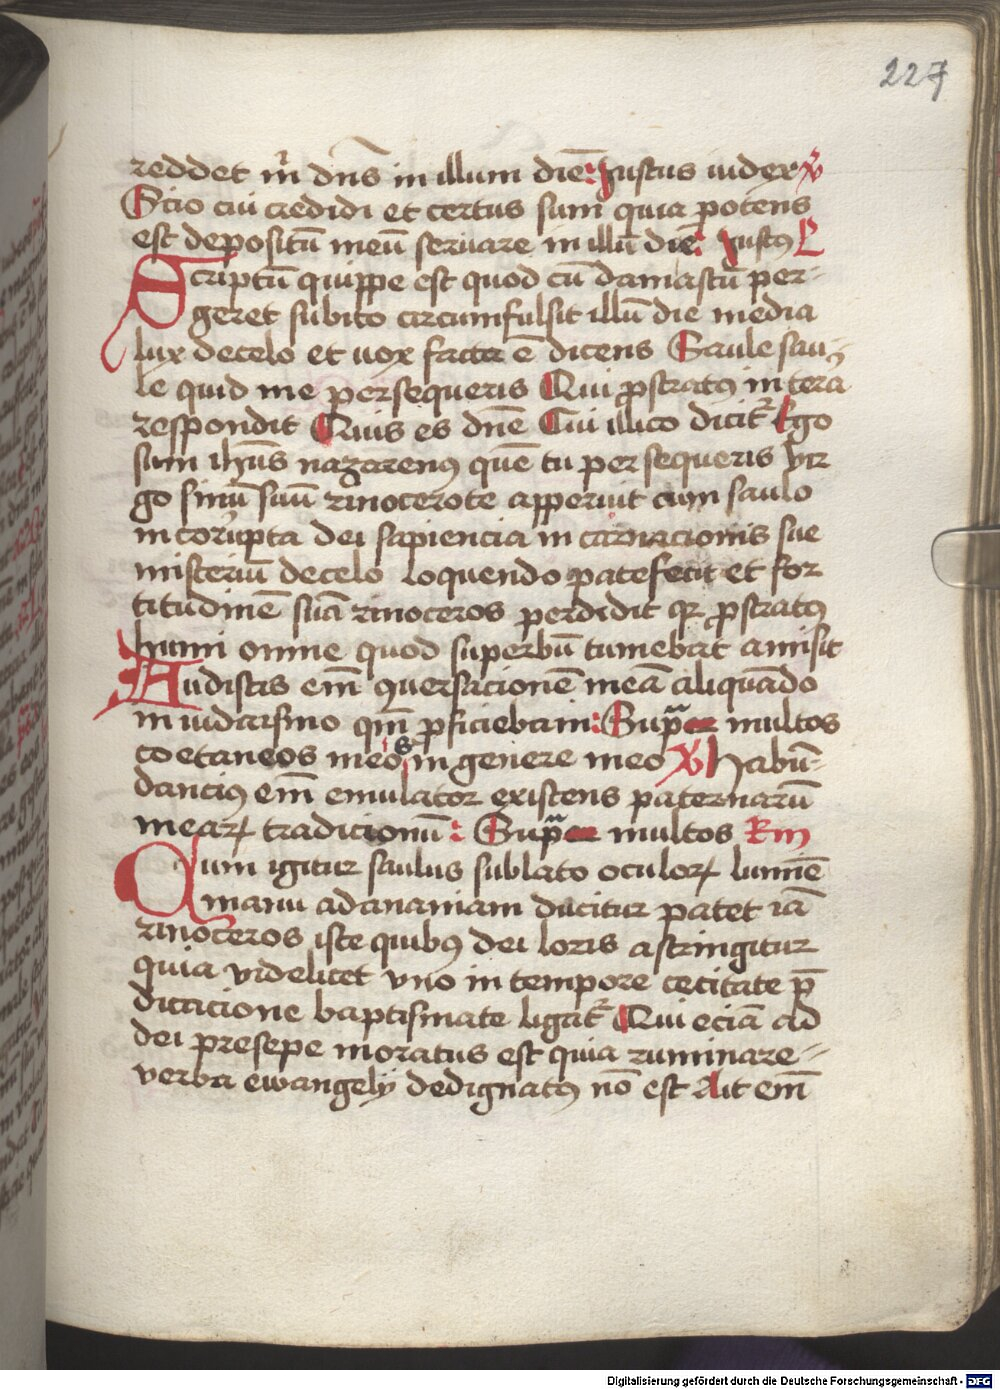 227
reddet m̄ dn̄s in illum diē: Justus iudex ℣
Scio cui credidi et certus sum quia potens
est depositū meū seruare in illū diē: Justꝰ L
Scriptū quippe est quod cū damascū per-
geret subito circumfulsit illū die media
lux decelo et uox facta ē dicens Saule sau-
le quid me persequeris Qui ꝓstratꝰ in tera
respondit Quis es dn̄e Cui illico dicit᷑ Ego
sum ihūs nazarenꝰ quē tu persequeris Vir
go sinū suū rinocerote apperuit cum saulo
incorupta dei sapiencia in carnacionis sue
misteriū decelo loquendo patefecit et for
titudinē suā rinoceros perdidit qr ꝓstratꝰ
humi omne quod superbū tumebat amisit
Audistis em̄ ꝯuersacionē meā aliquādo
in iudaismo qm̄ ꝓficiebam: Sup̄ multos
coetaneos meos in genere meo ℣ Habū-
dancius em̄ emulator existens paternarū
mearꝝ tradicionū: Sup̄ multos Rm
Qum igitur saulus sublato oculorꝝ lumīe
manu adananiam ducitur patet iā
rinoceros iste quibꝰ dei loris astringitur
quia videlicet vno in tempore cecitate p̄
dicacione baptismate ligat᷑ Qui eciā ad
dei presepe moratus est quia ruminare-
verba ewangelij dedignatꝰ nō est Ait em̄
Digitalisierung gefördert durch die Deutsche Forschungsgemeinschaft - DFG